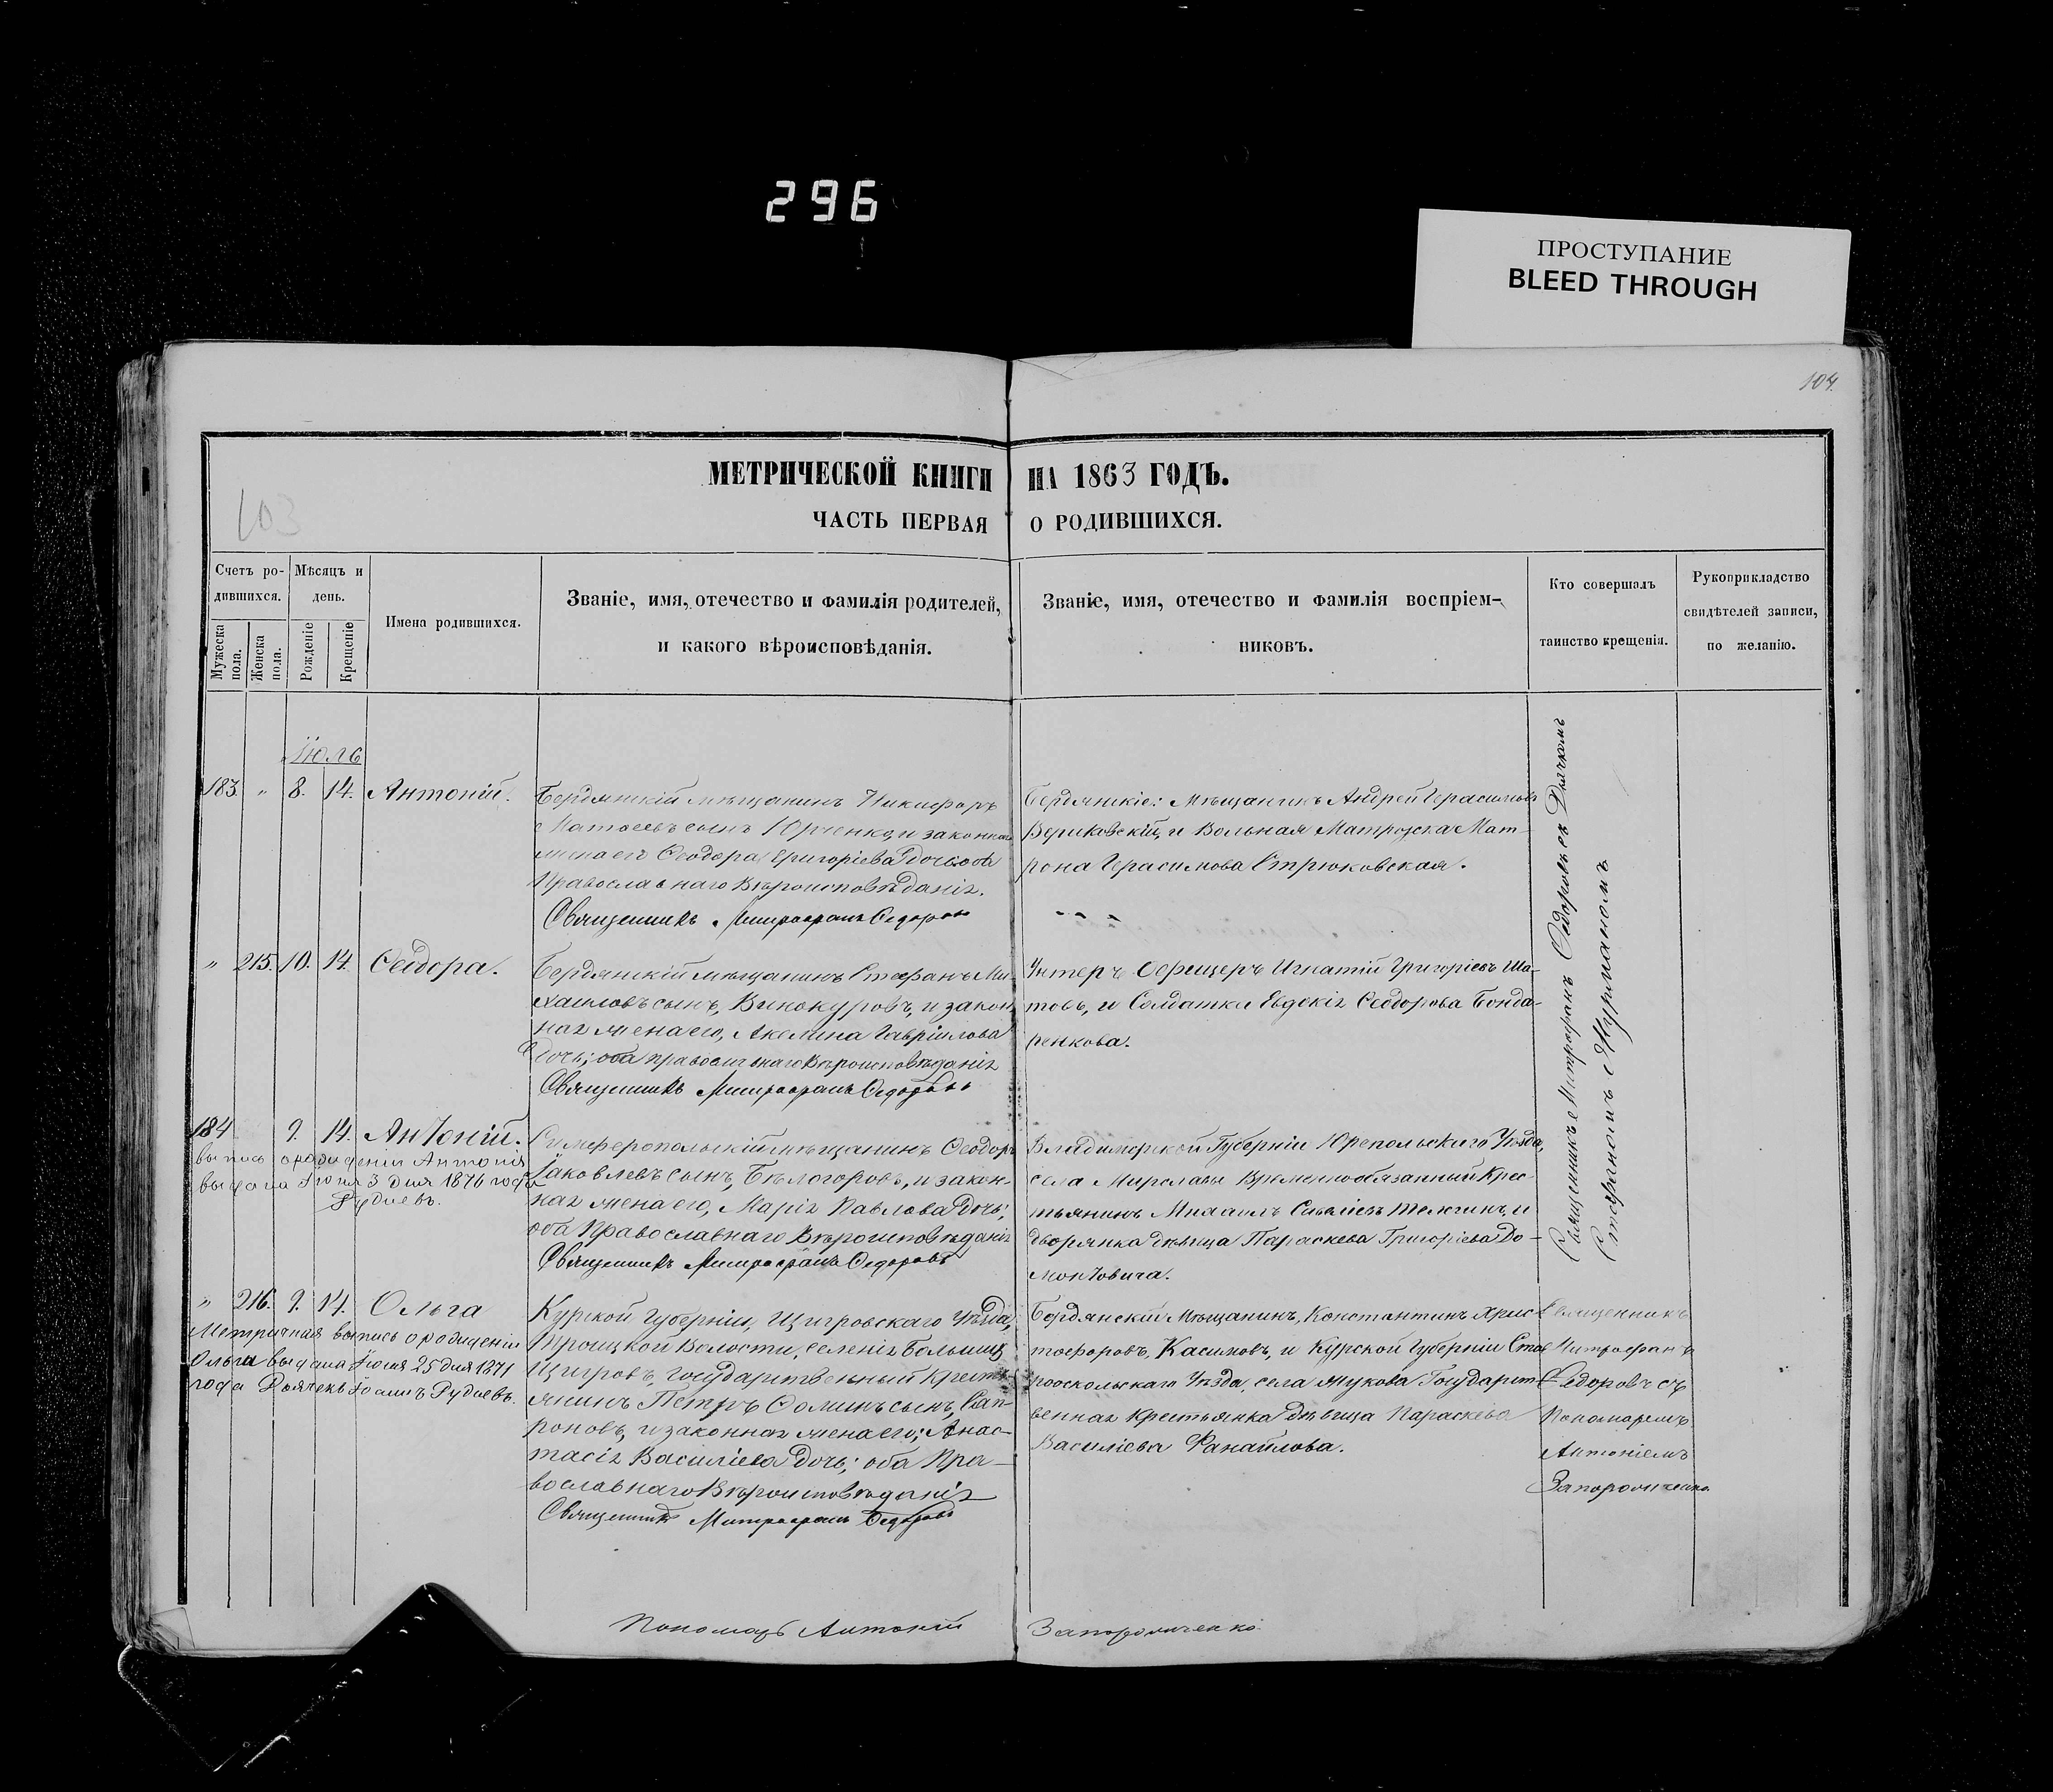 296
ПРОСТУПАНИЕ
BLEED THROUGH
104.
103
МЕТРИЧЕСКОЙ КНИГИ НА 1863 ГОДЪ.
ЧАСТЬ ПЕРВАЯ О РОДИВШИХСЯ.
Счетъ родившихся.
Мужеска пола.
Женска пола.
Мѣсяцъ и день.
Рожденіе
Крещеніе
Имена родившихся.
Званіе, имя, отечество и фамилія родителей,
и какого вѣроисповѣданія.
Званіе, имя, отечество и фамилія воспріем-
никовъ.
Кто совершалъ
таинство крещенія.
Рукоприкладство
свидѣтелей записи,
по желанію.
Іюль
183. " 8. 14. Антоній.
Бердянскій мѣщанинъ Никифоръ
Матвеевъ сынъ Юрченко, и законная
жена его Ѳеодора Григоріева дочь; оба
Православнаго Вѣроисповѣданія.
Священникъ Митрофанъ Ѳедоровъ
Бердянскіе: Мѣщанинъ Андрей Герасимовъ
Вериковскій, и Вольная Матроска Мат-
рона Герасимова Стрюковская.
" 215. 10. 14. Ѳеодора.
Бердянскій мѣщанинъ Стефанъ Ми-
хаиловъ сынъ, Винокуровъ, и закон-
ная жена его, Акелина Гавріилова
дочь; оба православнаго Вѣроисповѣданія
Священникъ Митрофанъ Ѳедоровъ
Унтеръ Офицеръ Игнатій Григоріевъ Ша-
товъ, и Солдатка Евдокія Ѳеодорова Бонда-
ренкова.
184 9. 14. Антоній.
выпись о рождении Антонія
выдана Іюня 3 дня 1876 года
Рудиевъ.
Симферопольскій мѣщанинъ Ѳеодоръ
Іаковлевъ сынъ, Бѣлогоровъ, и закон-
ная жена его, Марія Павлова дочь;
оба Православнаго Вѣроисповѣданія
Священникъ Митрофанъ Ѳедоровъ
Владимерской Губерніи Юрепольскаго Уѣзда,
села Мирславы Временнообязанный Крес-
тьянинъ Михаилъ Савеліевъ Телегинъ, и
дворянка дѣвица Параскева Григоріева До-
монтовича.
" 216. 9. 14. Ольга
Метричная выпись о рожденіи
Ольги выдана Іюня 25 дня 1871
года Іоаннъ Рудиевъ.
Курской Губерніи, Щигровскаго Уѣзда,
Троицкой Волости, селенія Большихъ
Щигровъ, Государственный Кресть-
янинъ Петръ Ѳоминъ сынъ, Сап-
роновъ, и законная жена его; Анас-
тасія Василіева дочь; оба Пра-
вославнаго Вѣроисповѣданія
Священникъ Митрофанъ Ѳедоровъ
Бердянскій Мѣщанинъ, Константинъ Христо-
тофоровъ, Касимовъ, и Курской Губерніи Ста-
рооскольскаго Уѣзда, села Жукова Государст-
венная Крестьянка дѣвица Параскева
Василіева Фанаилова.
Священникъ Митрофанъ Ѳедоровъ съ Дьячкомъ
Стефаномъ Журманомъ
Священникъ
Митрофанъ
Ѳедоровъ съ
Пономаремъ
Антоніемъ
Запорожченко.
Пономарь Антоній Запорожченко